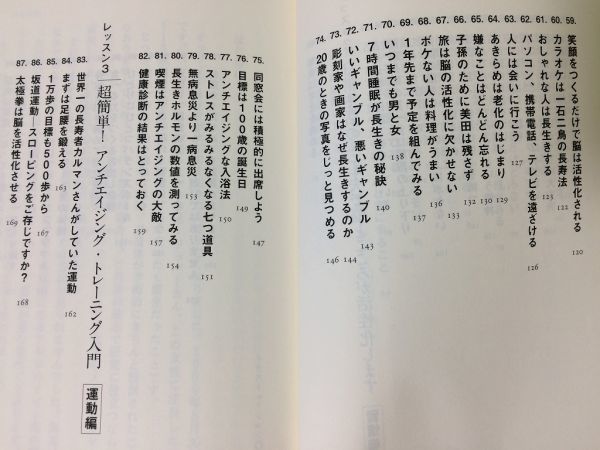 59. 笑顔をつくるだけで脳は活性化される 120
60. カラオケは一石二鳥の長寿法 121
61. おしゃれな人は長生きする 123
62. パソコン、携帯電話、テレビを遠ざける 126
63. 人には会いに行こう 127
64. あきらめは老化のはじまり 129
65. 嫌なことはどんどん忘れる 130
66. 子孫のために美田は残さず 132
67. 旅は脳の活性化に欠かせない 133
68. ボケない人は料理がうまい 136
69. 1年先まで予定を組んでみる 137
70. いつまでも男と女 138
71. 7時間睡眠が長生きの秘訣 140
72. いいギャンブル、悪いギャンブル 143
73. 彫刻家や画家はなぜ長生きするのか 144
74. 20歳のときの写真をじっと見つめる 146
75. 同窓会には積極的に出席しよう 147
76. 目標は100歳の誕生日 149
77. アンチエイジングな入浴法 150
78. ストレスがみるみるなくなる七つ道具 151
79. 無病息災より一病息災 153
80. 長生きホルモンの数値を測ってみる 154
81. 喫煙はアンチエイジングの大敵 157
82. 健康診断の結果はとっておく 159
レッスン3 超簡単!アンチエイジング・トレーニング入門 運動編
83. 世界一の長寿者カルマンさんがしていた運動 162
84. まずは足腰を鍛える 163
85. 1万歩の目標も500歩から 165
86. 坂道運動―スローピングをご存じですか? 168
87. 太極拳は脳を活性化させる 169